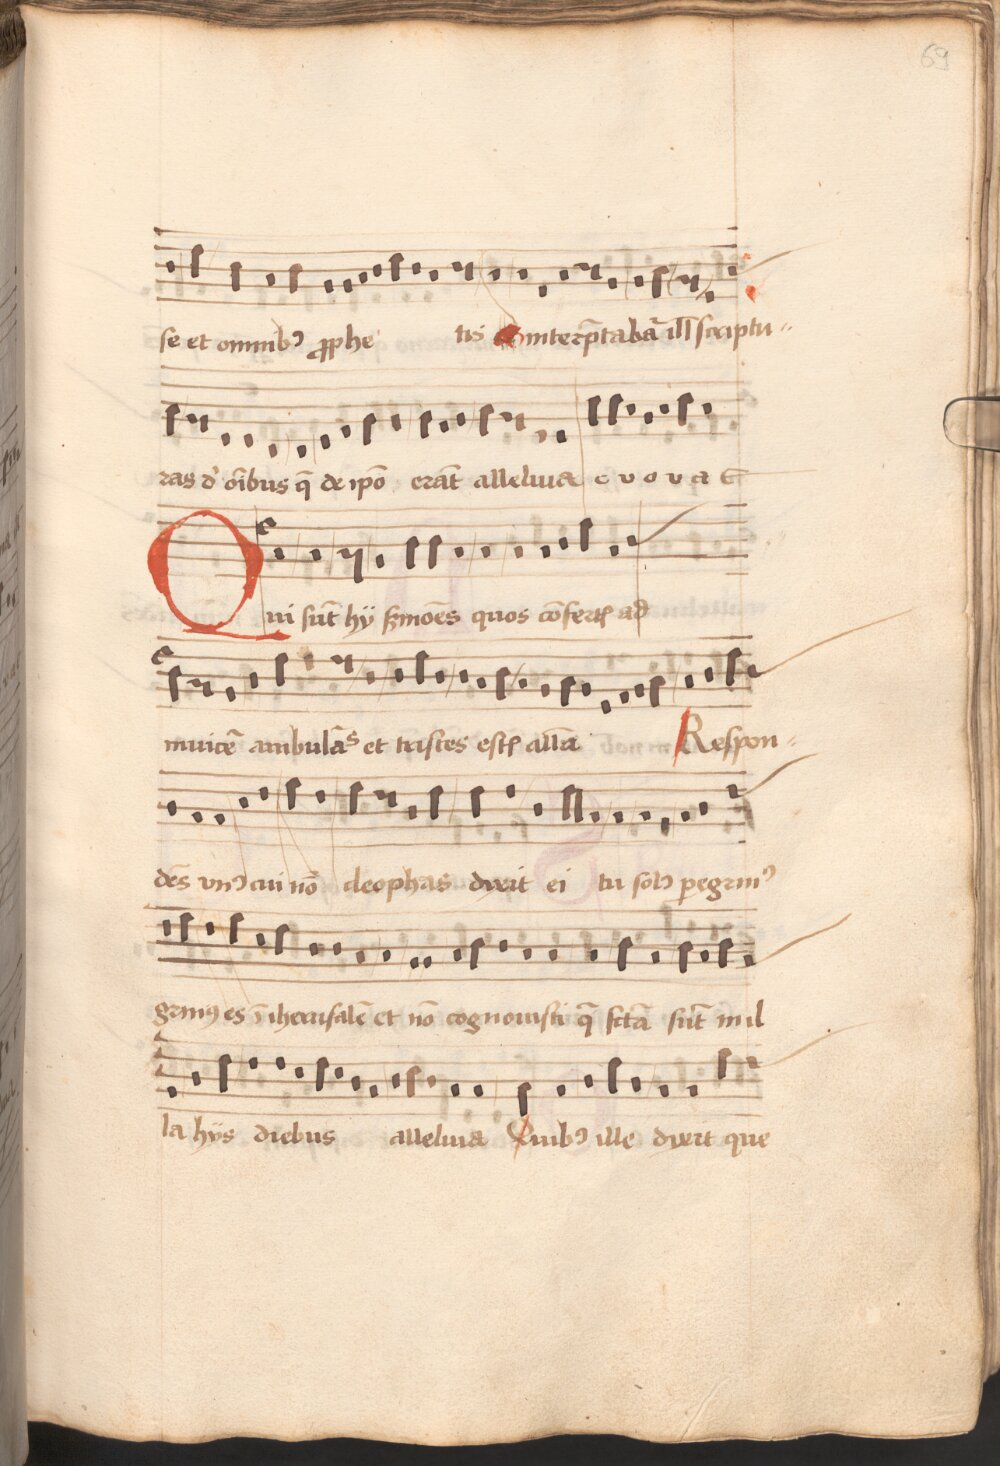 69
se et omnibꝰ ꝓphe tis interp̄tabāt ill̄ scriptu
ras d̉ oībus q̄ de ip̄o erāt alleluia e v o v a e
Qui sūt hÿ s̄mōēs quos cōfertꝭ ad
invicē ambulāˢ et tristes estꝭ all̄a Respon
dēs vnꝰ cui nō cleophas dixit ei tu solꝰ peregrinꝰ
grinꝰ es ī iherusalē et nō cognouisti q̄ fctā sūt in il
la hÿs diebus alleluia Quibꝰ ille dixit que